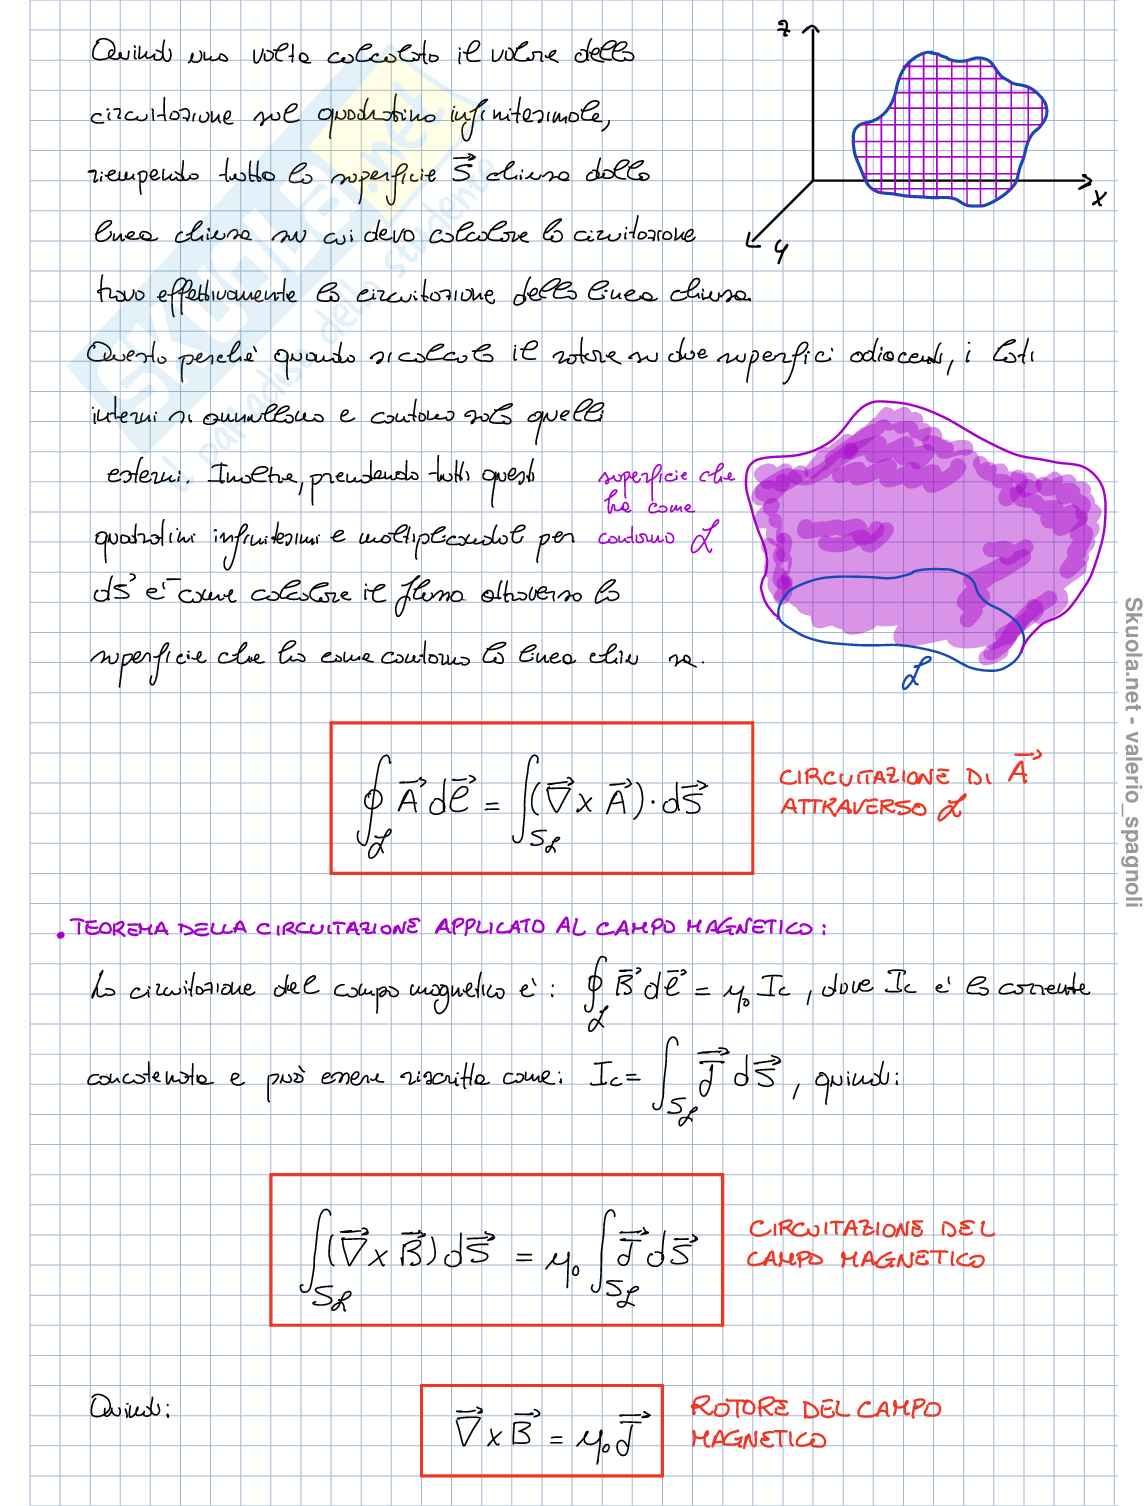 Quindi una volta calcolato il valore della
circuitazione sul quadratino infinitesimale,
riempendo tutta la superficie S⃗ chiusa dalla
linea chiusa su cui devo calcolare la circuitazione
trovo effettivamente la circuitazione della linea chiusa.
Questo perché quando si calcola il rotore su due superfici adiacenti, i lati
interni si annullano e contano solo quelli
esterni. Inoltre, prendendo tutti questi
quadratini infinitesimi e moltiplicandoli per
dS⃗ è come calcolare il flusso attraverso la
superficie che ha come contorno la linea chiusa.
z
x
y
superficie che
ha come
contorno ℒ
ℒ
∮_ℒ A⃗ dℓ⃗ = ∫_Sℒ (∇⃗ x A⃗) · dS⃗
CIRCUITAZIONE DI A⃗
ATTRAVERSO ℒ
• TEOREMA DELLA CIRCUITAZIONE APPLICATO AL CAMPO MAGNETICO:
La circuitazione del campo magnetico è: ∮_ℒ B⃗ dℓ⃗ = μ₀ Ic, dove Ic è la corrente
concatenata e può essere riscritta come: Ic = ∫_Sℒ J⃗ dS⃗, quindi:
∫_Sℒ (∇⃗ x B⃗) dS⃗ = μ₀ ∫_Sℒ J⃗ dS⃗
CIRCUITAZIONE DEL
CAMPO MAGNETICO
Quindi:
∇⃗ x B⃗ = μ₀ J⃗
ROTORE DEL CAMPO
MAGNETICO
SKUOLA.net
il paradiso dello studente
Skuola.net - valerio_spagnoli